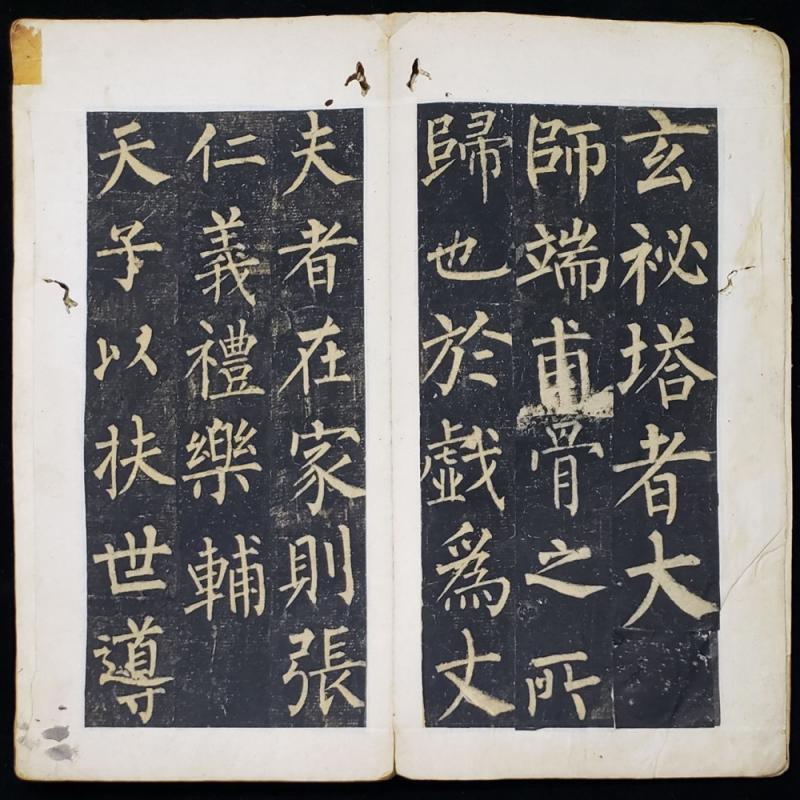 玄祕塔者大
師端甫骨之所
歸也於戯為丈
夫者在家則張
仁義禮樂輔
天子以扶世導